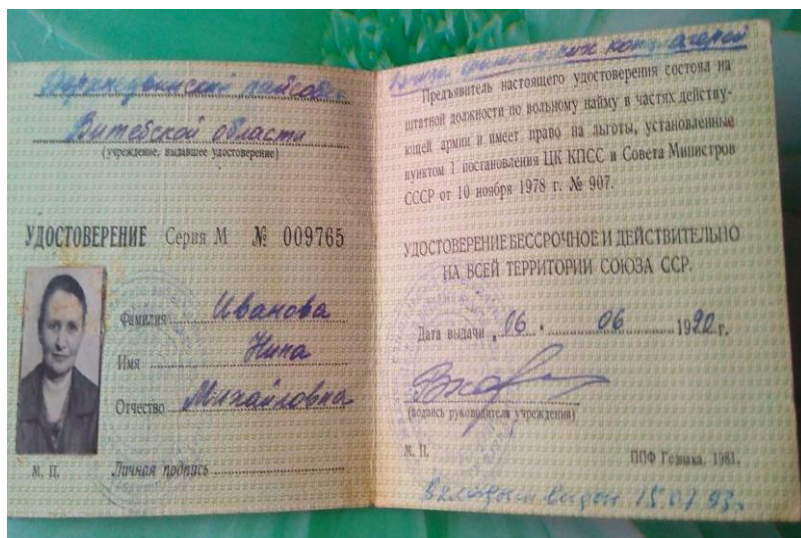 Верхнедвинский райсобес
Витебской области
(учреждение, выдавшее удостоверение)
УДОСТОВЕРЕНИЕ Серия М № 009765
Фамилия Иванова
Имя Нина
Отчество Михайловна
М. П. Личная подпись
концлагерей
Предъявитель настоящего удостоверения состоял на
штатной должности по вольному найму в частях действу-
ющей армии и имеет право на льготы, установленные
пунктом 1 постановления ЦК КПСС и Совета Министров
СССР от 10 ноября 1978 г. № 907.
УДОСТОВЕРЕНИЕ БЕССРОЧНОЕ И ДЕЙСТВИТЕЛЬНО
НА ВСЕЙ ТЕРРИТОРИИ СОЮЗА ССР.
Дата выдачи 06. 06 1992 г.
(подпись руководителя учреждения)
М. П. ППФ Гознака. 1981.
15.07.93